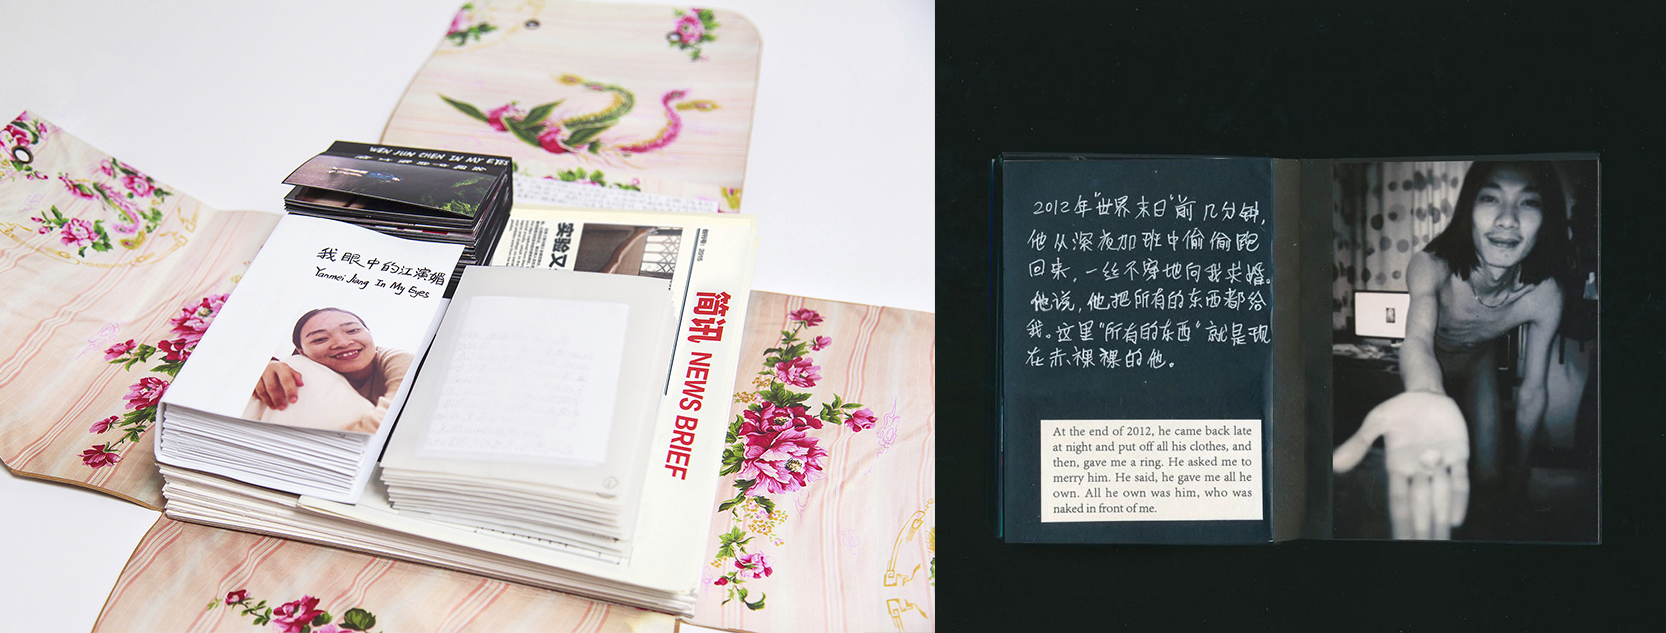 WEN JUN CHEN IN MY EYES
我眼中的江演媚
Yanmei Jiang In My Eyes
实验又
创刊号: 2015
简讯 NEWS BRIEF
2012年"世界末日"前几分钟,
他从深夜加班中偷偷跑
回来,一丝不穿地向我求婚。
他说,他把所有的东西都给
我。这里"所有的东西"就是现
在赤裸裸的他。
At the end of 2012, he came back late
at night and put off all his clothes, and
then, gave me a ring. He asked me to
merry him. He said, he gave me all he
own. All he own was him, who was
naked in front of me.